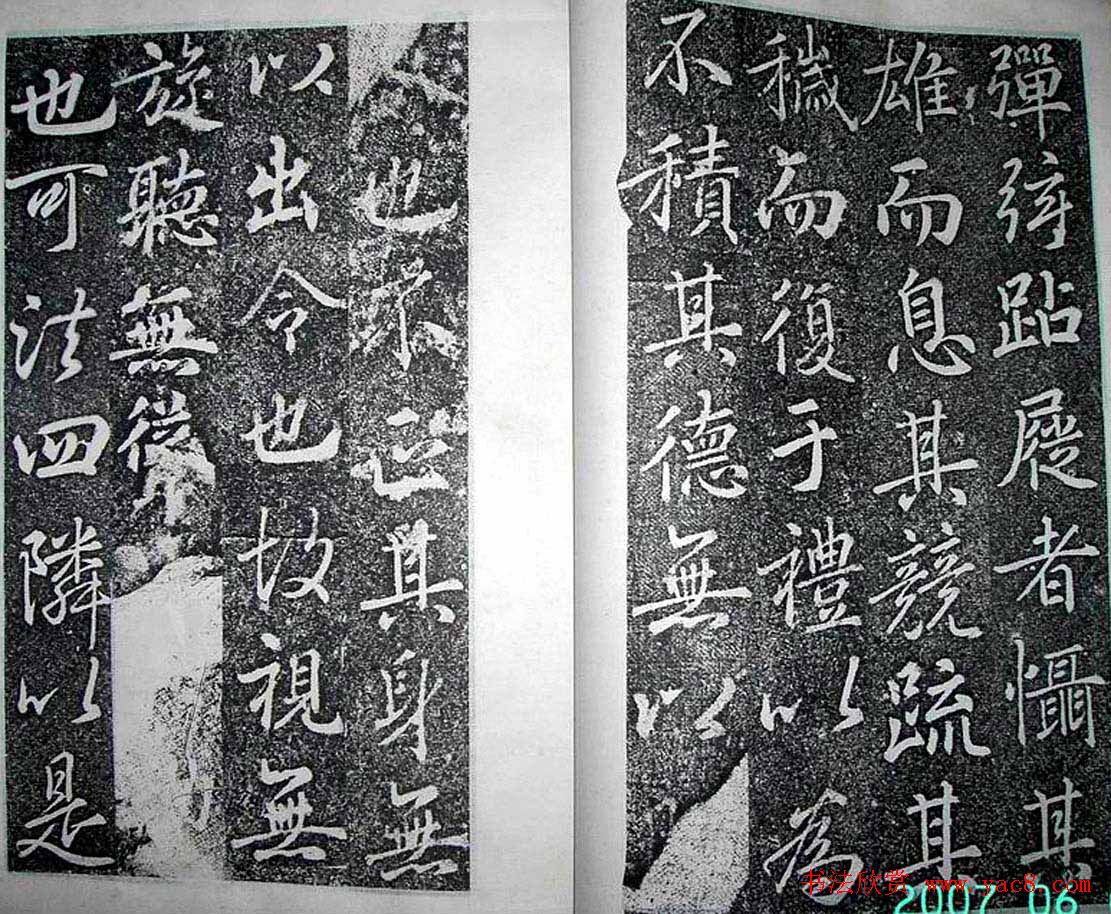 彈弦跕屣者懾其
雄而息其競疏其
穢而復于禮以為
不積其德無以
也不正其身無
以出令也故視無
旋聽無從
也可法四隣以是
书法欣赏 www.yac8.com
2007 06